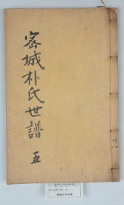 密城朴氏世譜 五